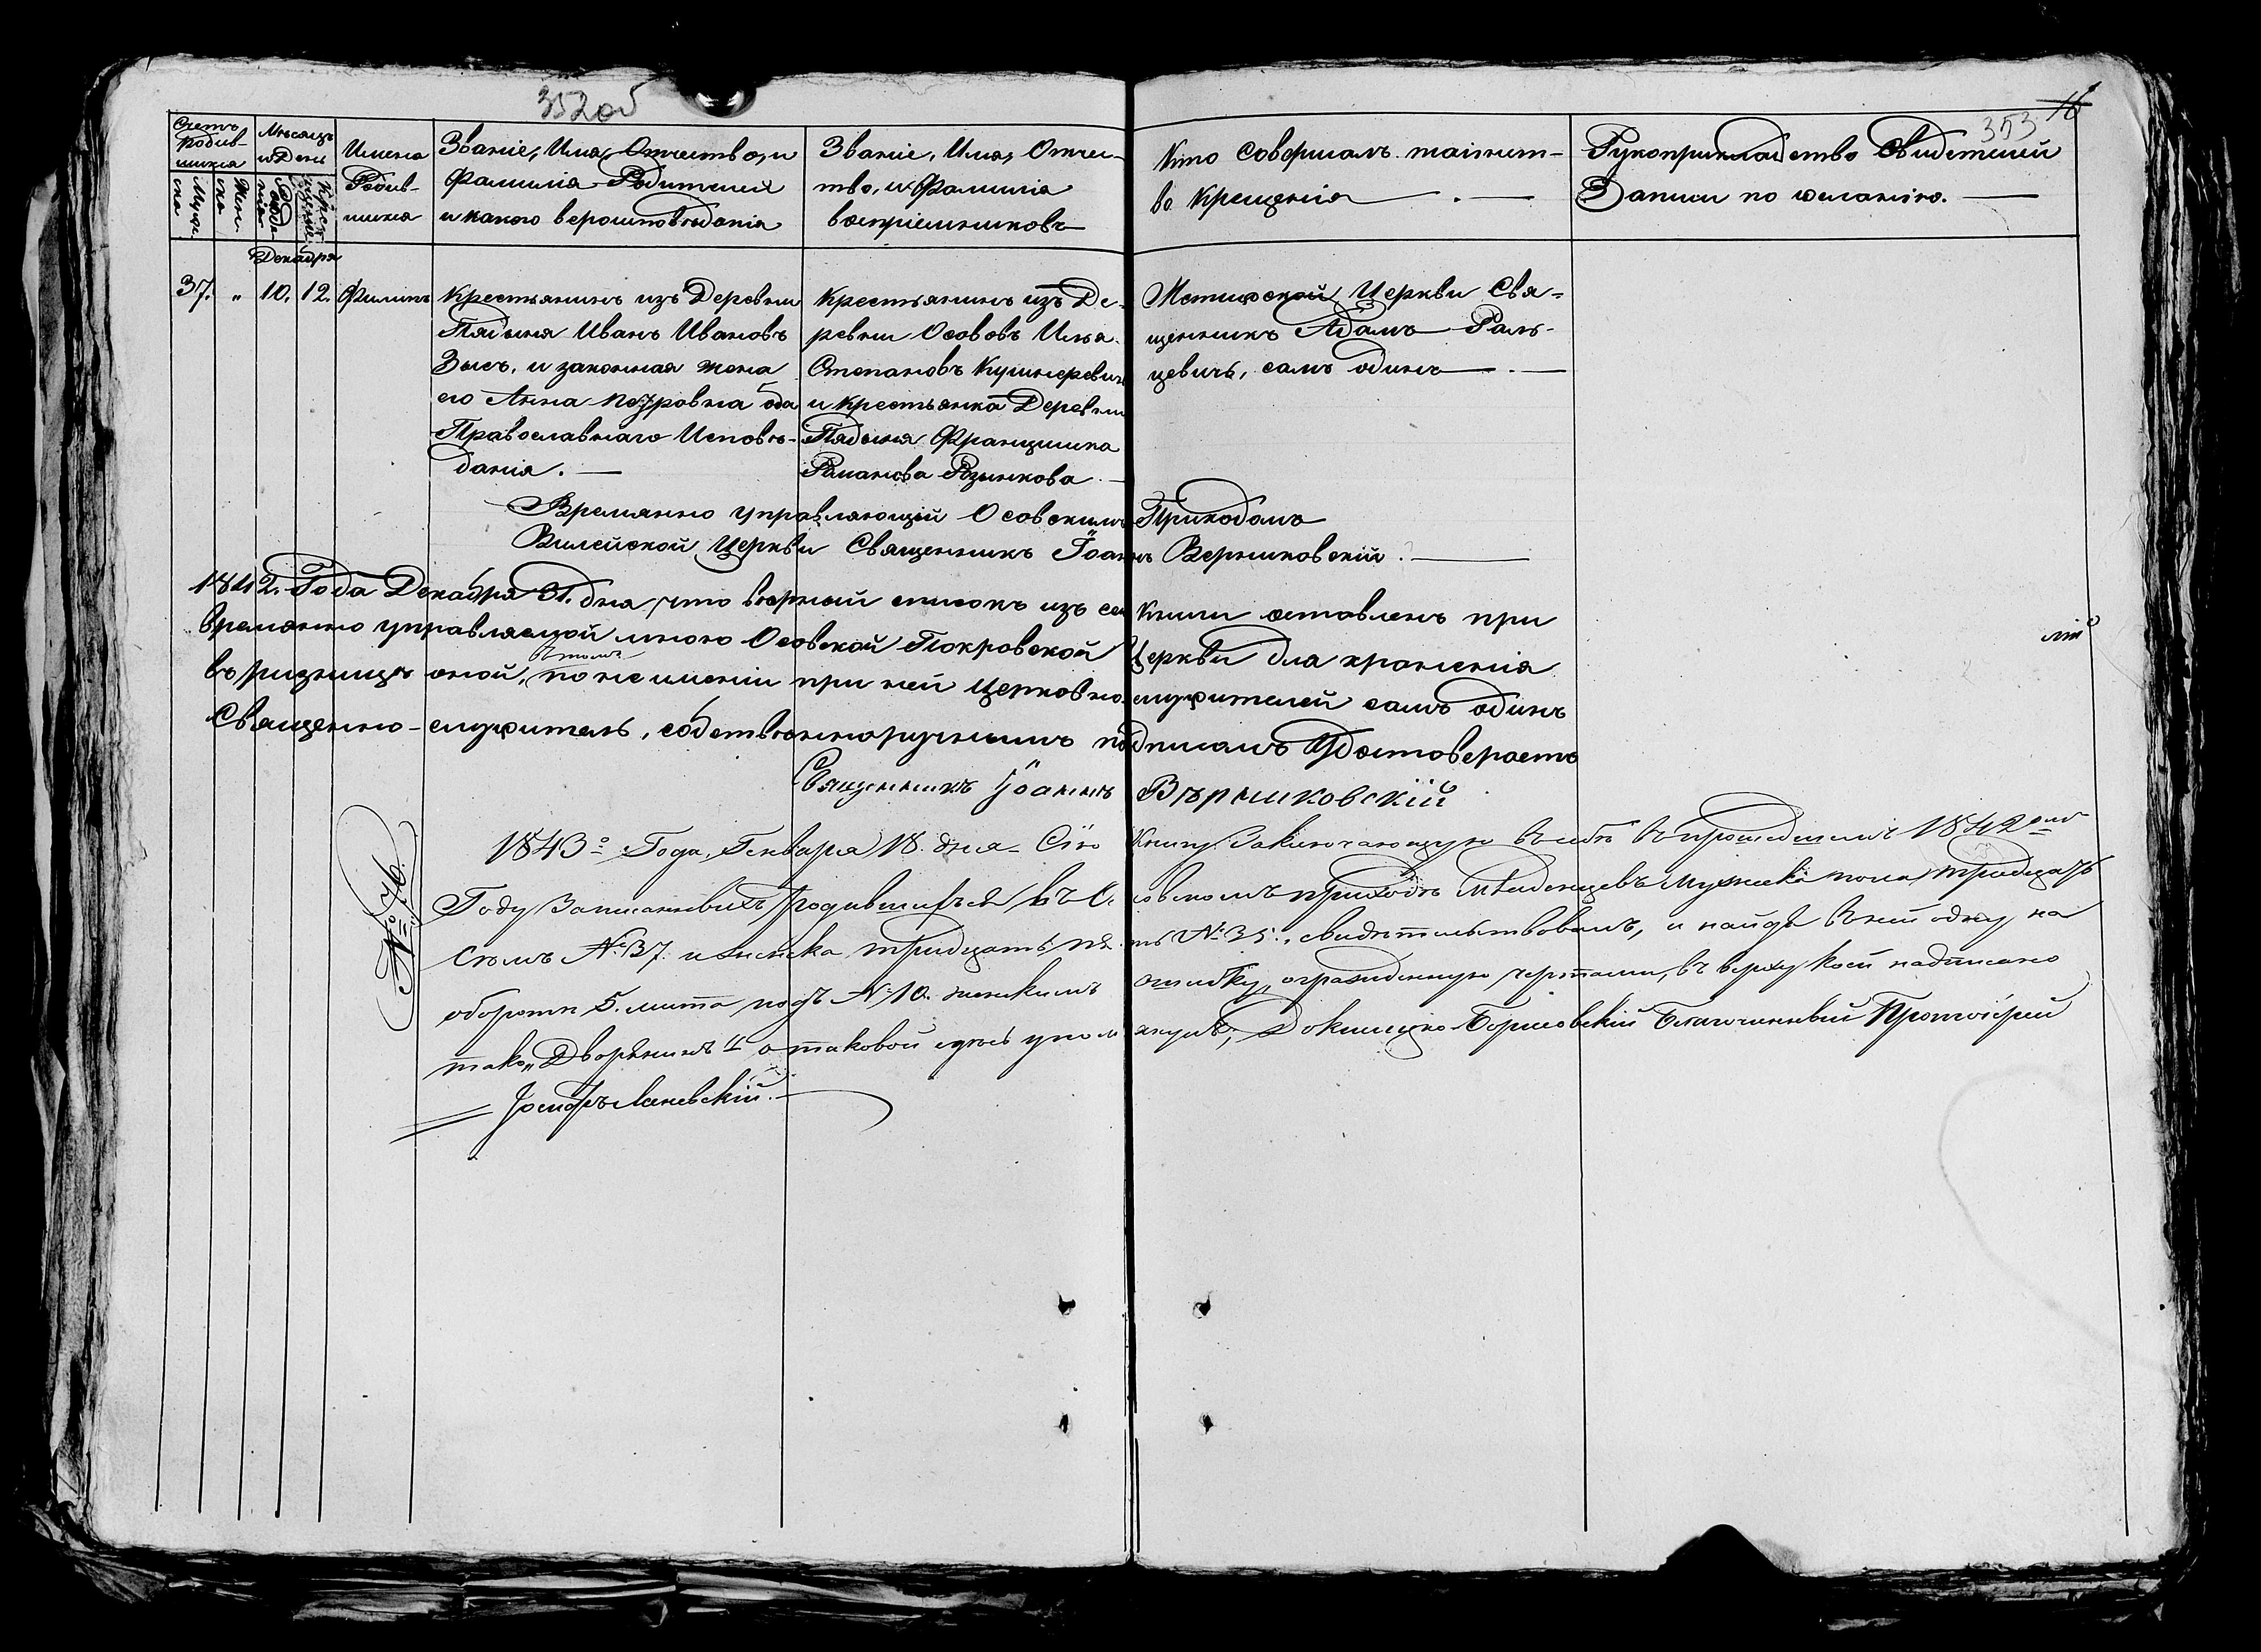 352об
16
353.
Счетъ родив-шихся
Мѣсяцъ и День
Имена Родив-шихся
Званіе, Имя, Отчество, и
Фамилія Родителей
и какого вероисповѣданія
Званіе, Имя, Отчес-
тво, и Фамилія
воспріемниковъ
Кто совершалъ таинст-
во Крещенія
Рукоприкладство Свидетелей
Записи по желанію.
Муже-ска
Жен-ска
Рожде-нія
Креще-нія
Декабря
37. „ 10. 12. Филипъ
Крестьянинъ изъ Деревни
Пядыня Иванъ Ивановъ
Зысь, и законная жена
его Анна Петровна оба
Православнаго Исповѣ-
данія.
Крестьянинъ изъ Де-
ревни Ососовъ Илья
Степановъ Кушнеревичъ
и крестьянка Деревни
Пядыня Францишка
Романова Розынкова
Мстижской Церкви Свя-
щенникъ Адамъ
цевичь, самъ одинъ
Времянно управляющій Осовскимъ Приходомъ
Вилейской Церкви Священникъ Іоаннъ Верниковскій.
1842. Года Декабря 31. дня, что верный списокъ изъ сей Книги оставленъ при
времянно управляемой мною Осовской Покровской Церкви для храненія
въ ризницѣ оной, въ томъ по не имѣніи при ней Церковно служителей самъ одинъ
Священно-служитель, собственноручнымъ подписомъ Удостоверяетъ
Священникъ Іоаннъ Вѣрниковскій
№ 76.
1843го Года, Генваря 18. дня Сію Книгу Заключающую въ себѣ въ прошедшемъ 1842омъ
Году Записанныхъ, родившихся въ Осовскомъ приходѣ Младенцевъ Мужеска пола тридцать
семь №37. и женска тридцать пять №35., свидѣтельствовалъ, и найдя въ ней одну на
оборотѣ 5. листа подъ №10. женскимъ ошибку, огражденную чертами, въ верху коей надписано
тако „Дворянинъ“ о таковой здѣсь упомянувъ, Докшицко-Борисовскій Благочинный Протоіерей
Іосифъ